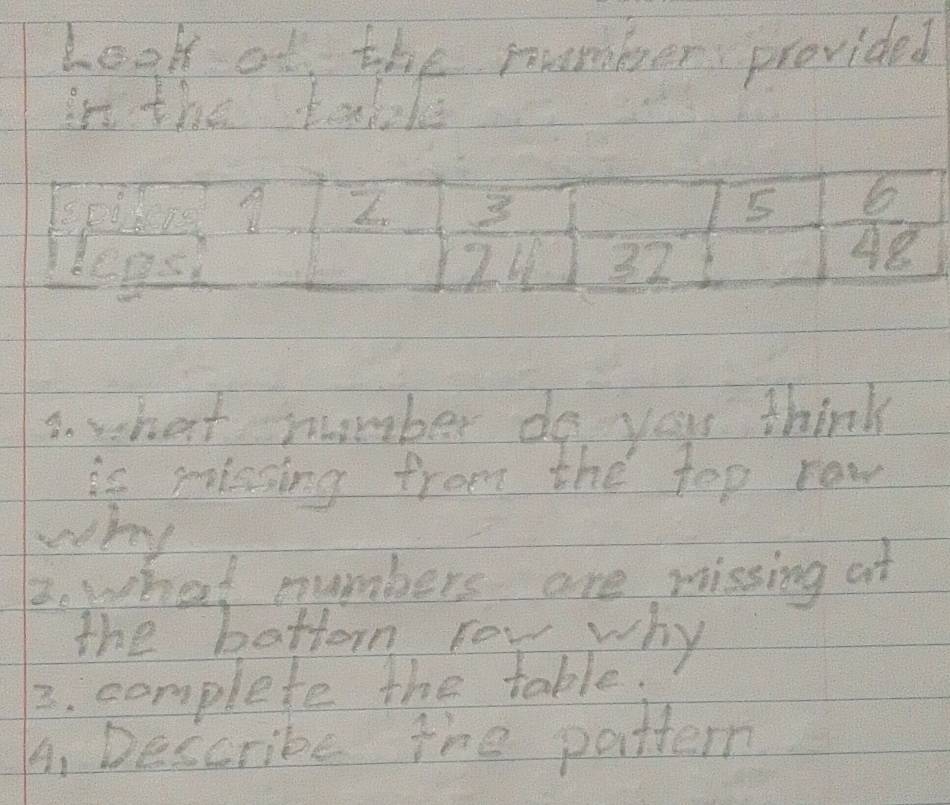 Look at the number provided
in the table
spiders 1 2 3 5 6
legs 24 32 48
1. what number do you think
is missing from the top row
why
2. what numbers are missing at
the bottom row why
3. complete the table.
4, Describe the pattern